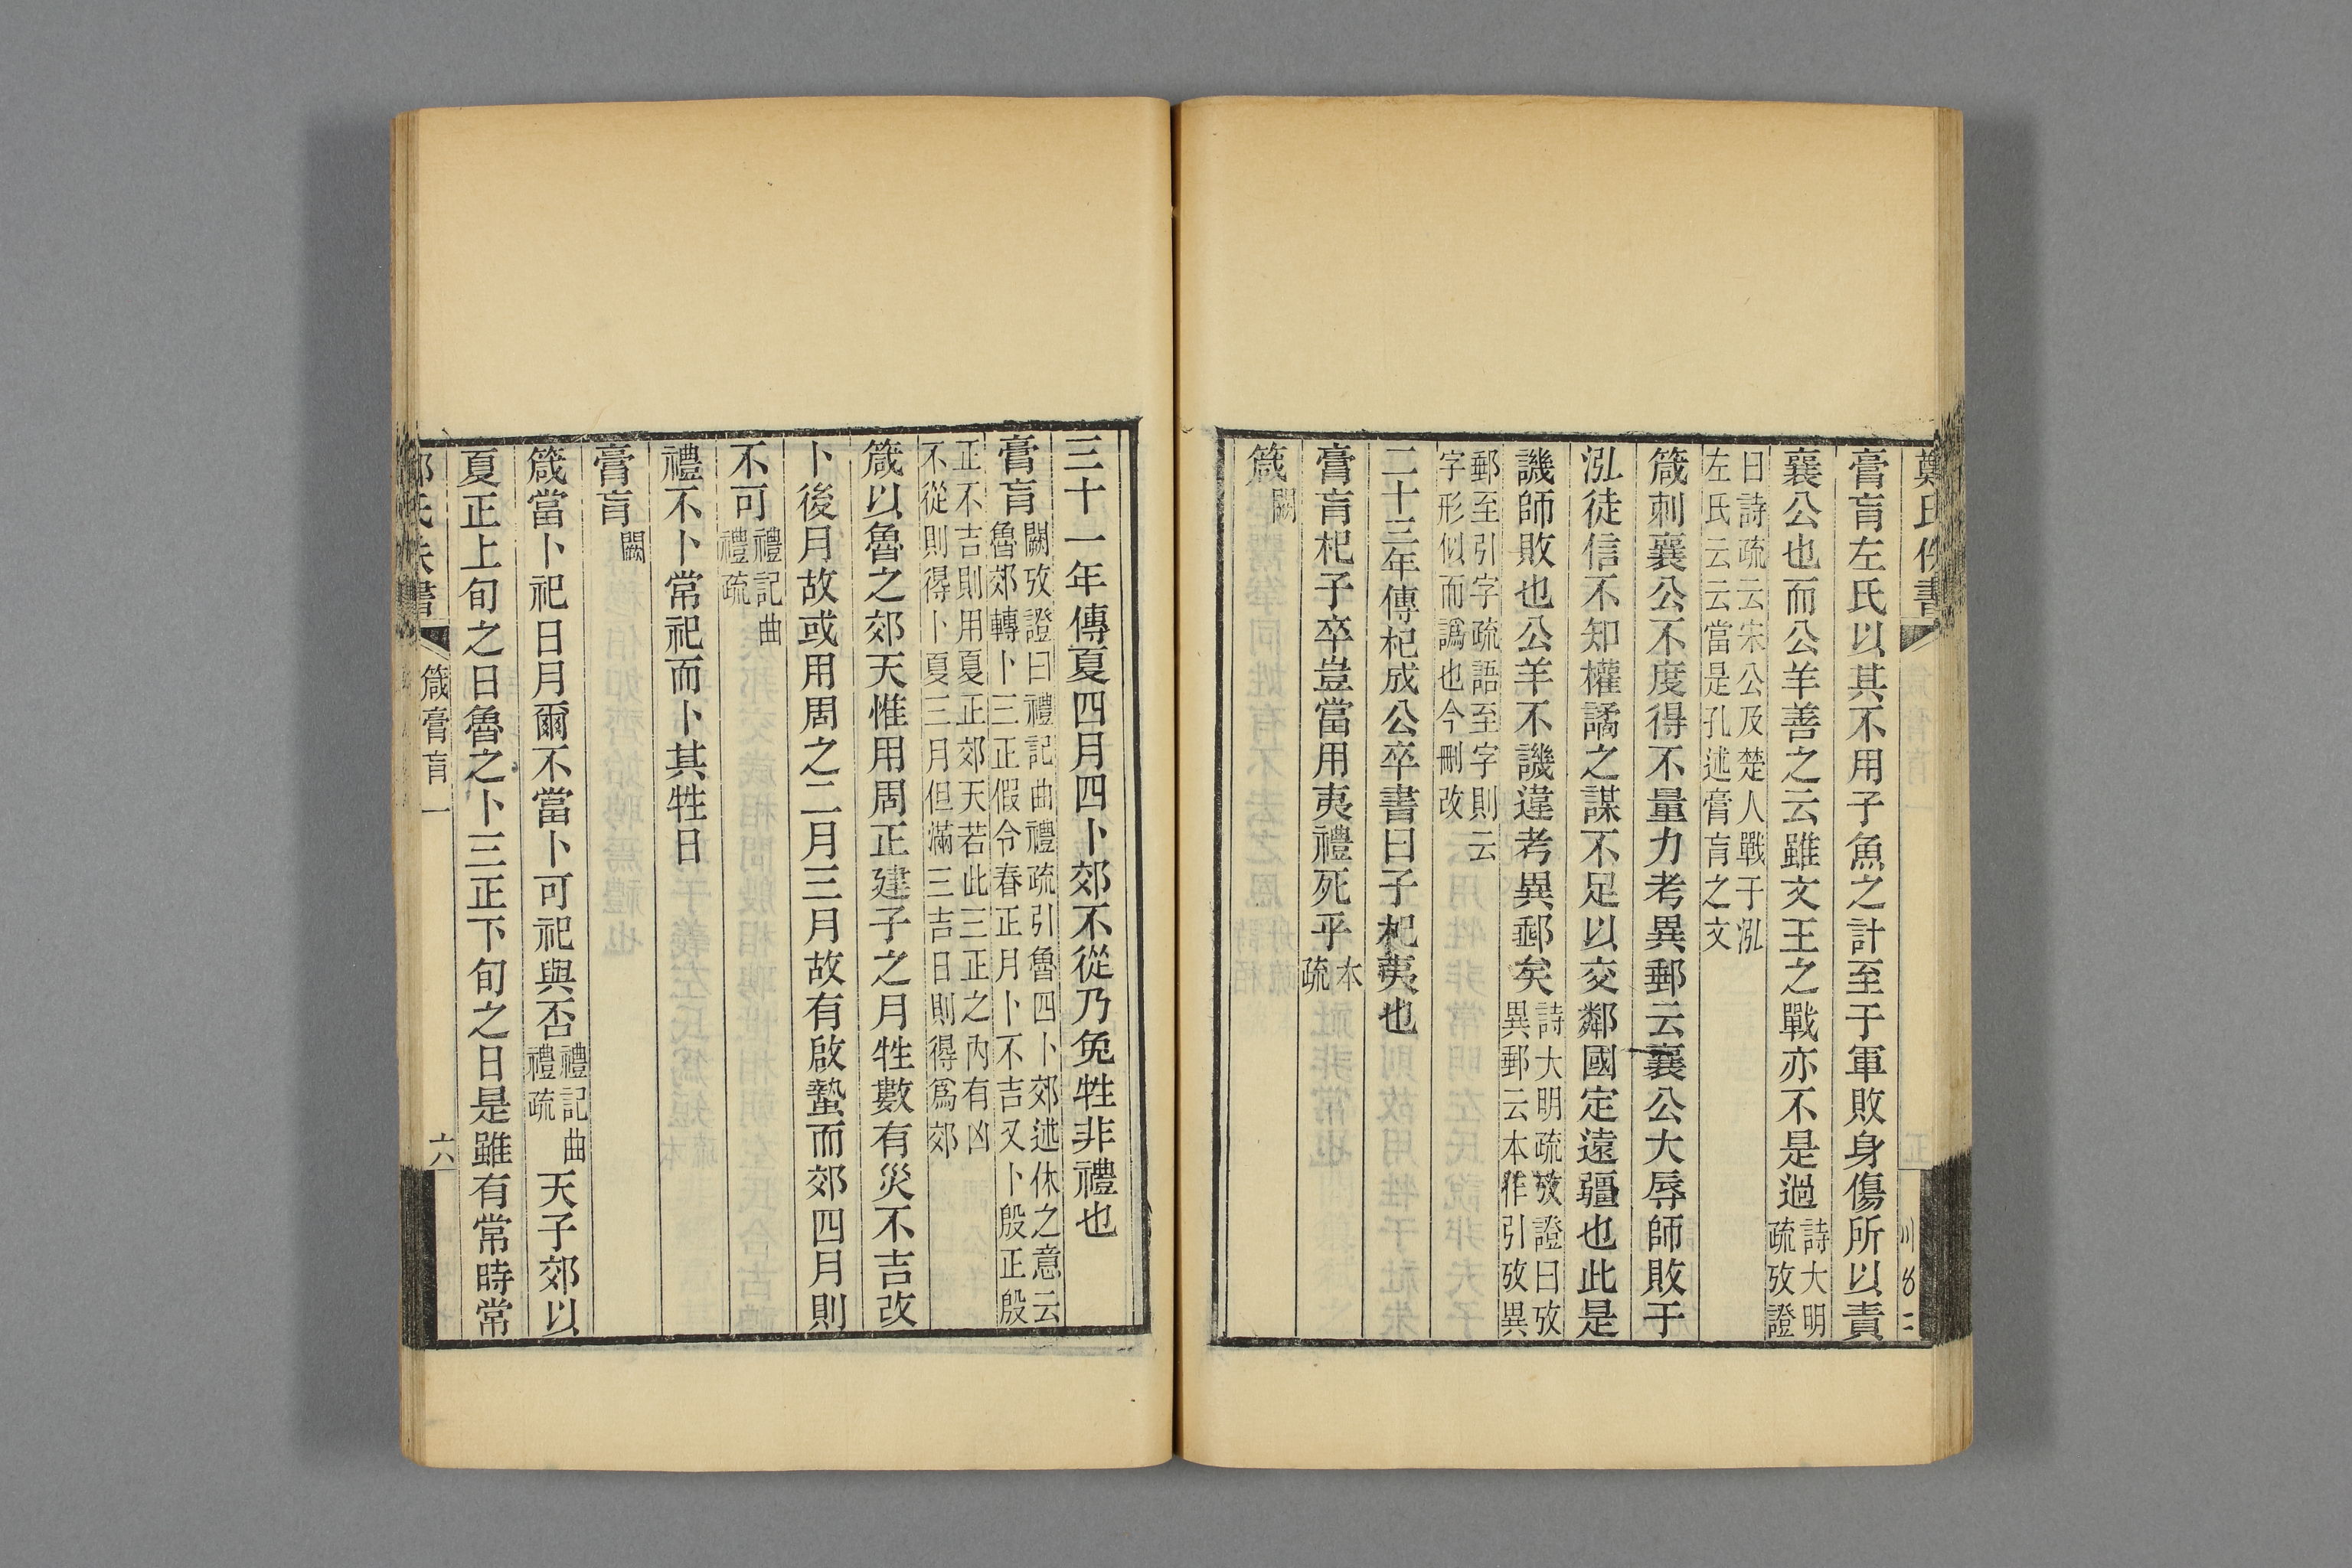 鄭氏佚書
膏肓左氏以其不用子魚之計至于軍敗身傷所以責
襄公也而公羊善之云雖文王之戰亦不是過詩大明疏攷證
曰詩疏云宋公及楚人戰于泓左氏云云當是孔述膏肓之文
箴刺襄公不度得不量力考異郵云襄公大辱師敗于
泓徒信不知權譎之謀不足以交鄰國定遠疆也此是
譏師敗也公羊不譏違考異郵矣詩大明疏攷證曰攷異郵云本作引攷異
郵至引字疏語至字則云字形似而譌也今刪改
二十三年傳杞成公卒書曰子杞夷也
膏肓杞子卒豈當用夷禮死乎本疏
箴闕
三十一年傳夏四月四卜郊不從乃免牲非禮也
膏肓闕攷證曰禮記曲禮疏引魯四卜郊述休之意云魯郊轉卜三正假令春正月卜不吉又卜殷正殷
正不吉則用夏正郊天若此三正之內有凶不從則得卜夏三月但滿三吉日則得爲郊
箴以魯之郊天惟用周正建子之月牲數有災不吉改
卜後月故或用周之二月三月故有啟蟄而郊四月則
不可禮記曲禮疏
禮不卜常祀而卜其牲日
膏肓闕
箴當卜祀日月爾不當卜可祀與否禮記曲禮疏天子郊以
夏正上旬之日魯之卜三正下旬之日是雖有常時常
箴膏肓一
六